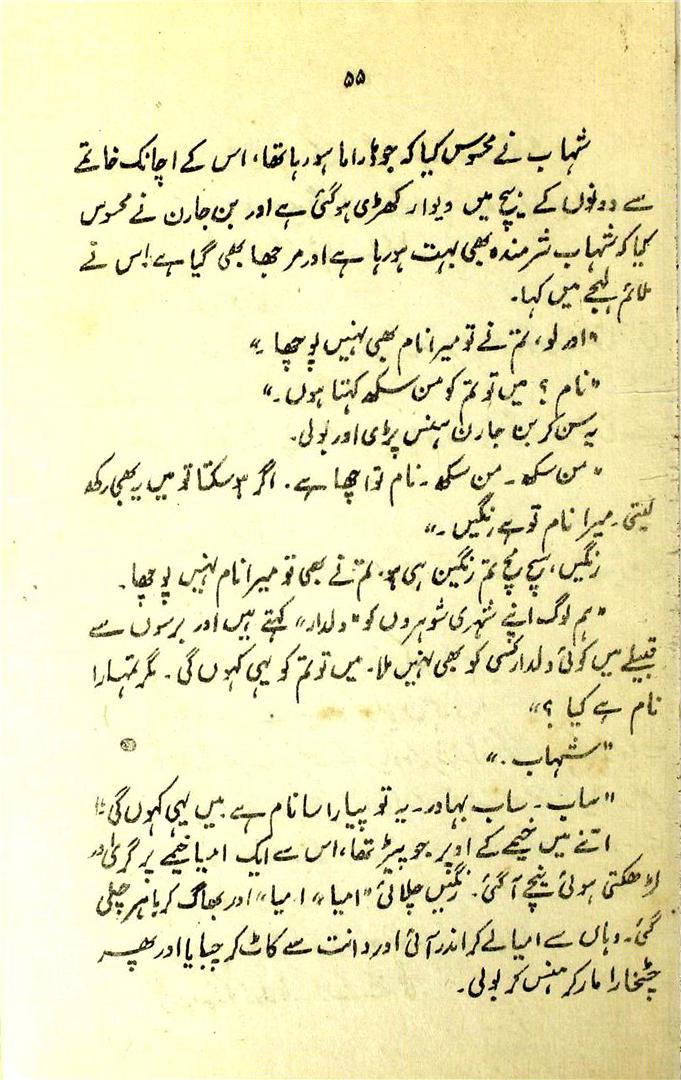 ۵۵
شہاب نے محسوس کیا کہ جو ڈراما ہو رہا تھا، اس کے اچانک خاتمے
سے دونوں کے بیچ میں دیوار کھڑی ہو گئی ہے اور بن جارن نے محسوس
کیا کہ شہاب شرمندہ بھی بہت ہو رہا ہے اور مرجھا بھی گیا ہے اس نے
ملائم لہجے میں کہا۔
"اور لو، تم نے تو میرا نام بھی نہیں پوچھا۔"
"نام؟ میں تو تم کو من سکھ کہتا ہوں۔"
یہ سن کر بن جارن ہنس پڑی اور بولی۔
"من سکھ۔ من سکھ۔ نام تو اچھا ہے۔ اگر ہو سکتا تو میں یہ بھی رکھ
لیتی۔ میرا نام تو ہے رنگیں۔"
رنگیں، سچ مچ تم رنگین ہی ہو۔ تم نے بھی تو میرا نام نہیں پوچھا۔
"ہم لوگ اپنے شہری شوہروں کو "دلدار" کہتے ہیں اور برسوں سے
قبیلے میں کوئی دلدار کسی کو بھی نہیں ملا۔ میں تو تم کو یہی کہوں گی۔ مگر تمہارا
نام ہے کیا؟"
"شہاب۔"
"ساب۔ ساب بہادر۔ یہ تو پیارا سا نام ہے۔ میں یہی کہوں گی۔"
اتنے میں خیمے کے اوپر جو پیڑ تھا، اس سے ایک امیا خیمے پر گری اور
لڑھکتی ہوئی نیچے آ گئی۔ رنگیں چلائی "امیا، امیا" اور بھاگ کر باہر چلی
گئی۔ وہاں سے امیا لے کر اندر آئی اور دانت سے کاٹ کر چبایا اور پھر
چٹخارا مار کر ہنس کر بولی۔